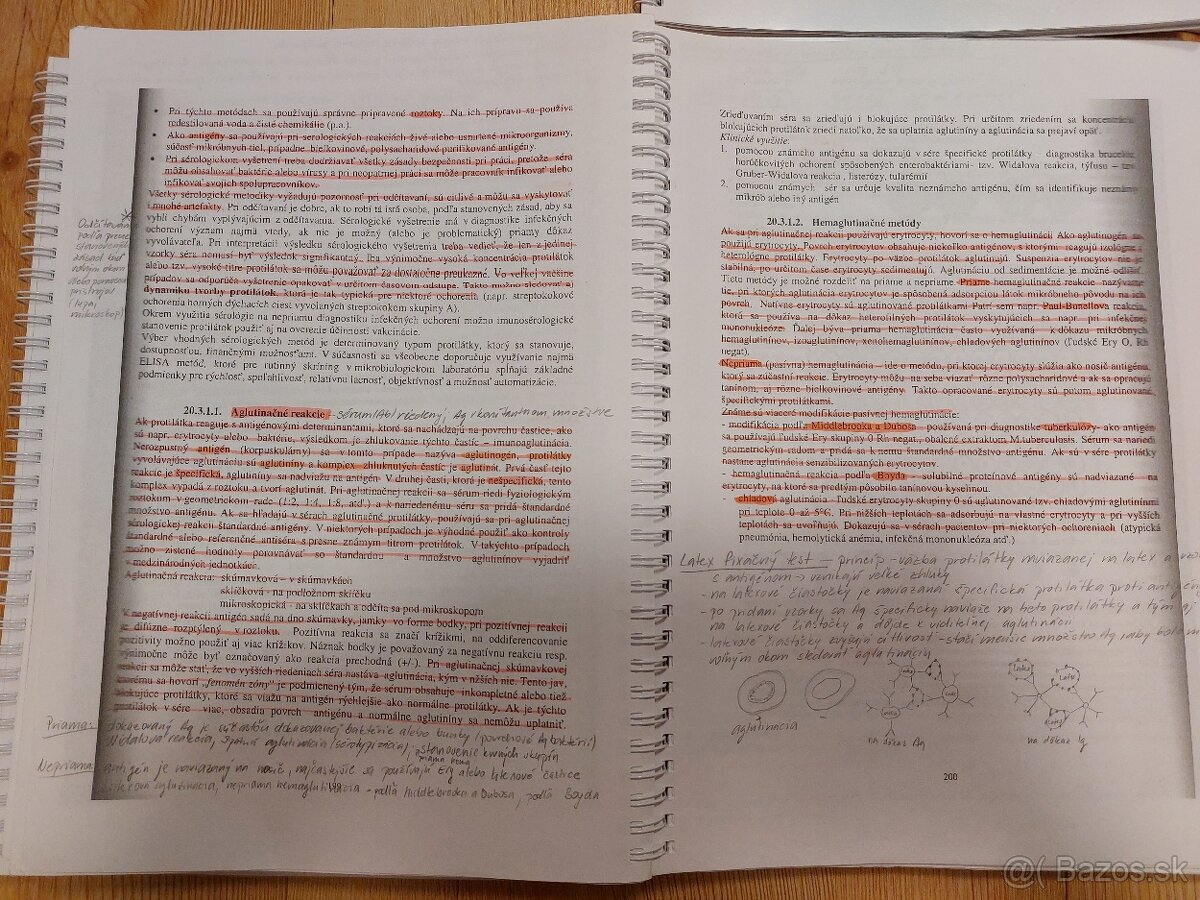 • Pri týchto metódach sa používajú správne pripravené roztoky. Na ich prípravu sa používa
redestilovaná voda a čisté chemikálie (p.a.).
• Ako antigény sa používajú pri sérologických reakciách živé alebo usmrtené mikroorganizmy,
súčasť mikrobných ciel, prípadne bielkovinové, polysacharidové purifikované antigény.
• Pri sérologickom vyšetrení treba dodržiavať všetky zásady bezpečnosti pri práci, pretože séra
môžu obsahovať baktérie alebo vírusy a pri neopatrnej práci sa môže pracovník infikovať alebo
infikovať svojich spolupracovníkov.
Všetky sérologické metodiky vyžadujú pozornosť pri odčítaní, sú citlivé a môžu sa vyskytovať
i mnohé artefakty. Pri odčítaní je dobre, ak to robí tá istá osoba, podľa stanovených zásad, aby sa
vyhli chybám vyplývajúcim z odčítavania. Sérologické vyšetrenie má v diagnostike infekčných
ochorení význam najmä vtedy, ak nie je možný (alebo je problematický) priamy dôkaz
vyvolávateľa. Pri interpretácii výsledku sérologického vyšetrenia treba vedieť, že len z jednej
vzorky séra nemusí byť výsledok signifikantný. Iba výnimočne vysoká koncentrácia protilátok
alebo tzv. vysoké titre protilátok sa môžu považovať za dostatočne preukazné. Vo veľkej väčšine
prípadov sa odporúča vyšetrenie opakovať v určitom časovom odstupe. Takto možno sledovať aj
dynamiku tvorby protilátok, ktorá je tak typická pre niektoré ochorenia (napr. streptokokové
ochorenia horných dýchacích ciest vyvolaných streptokokom skupiny A).
Okrem využitia sérológie na nepriamu diagnostiku infekčných ochorení možno imunosérologické
stanovenie protilátok použiť aj na overenie účinnosti vakcinácie.
Výber vhodných sérologických metód je determinovaný typom protilátky, ktorý sa stanovuje,
dostupnosťou, finančnými možnosťami. V súčasnosti sa všeobecne doporučuje využívanie najmä
ELISA metóc, ktoré pre rutinný skríning v mikrobiologickom laboratóriu spĺňajú základné
podmienky pre rýchlosť, spoľahlivosť, relatívnu lacnosť, objektívnosť a možnosť automatizácie.
Odčítavanie
podľa presne
stanovených
zásad buď
voľným okom
alebo pomocou
prístrojov
(lupa,
mikroskop)
20.3.1.1. Aglutinačné reakcie - sérum (Ab) riedený, Ag v konštantnom množstve
Ak protilátka reaguje s antigénovými determinantami, ktoré sa nachádzajú na povrchu častice, ako
sú napr. erytrocyty alebo baktérie, výsledkom je zhlukovanie týchto častíc – imunoaglutinácia.
Nerozpustný antigén (korpuskulárny) sa v tomto prípade nazýva aglutinogén, protilátky
vyvolávajúce aglutináciu sú aglutiníny a komplex zhluknutých častíc je aglutinát. Prvá časť tejto
reakcie je špecifická, aglutiníny sa nadviažu na antigén. V druhej časti, ktorá je nešpecifická, tento
komplex vypadá z roztoku a tvorí aglutinát. Pri aglutinačnej reakcii sa sérum riedi fyziologickým
roztokom v geometrickom rade (1:2, 1:4, 1:8, atď.) a k nariedenému séru sa pridá štandardné
množstvo antigénu. Ak sa hľadajú v sérach aglutinačné protilátky, používajú sa pri aglutinačnej
sérologickej reakcii štandardné antigény. V niektorých prípadoch je výhodné použiť ako kontroly
štandardné alebo referenčné antiséra s presne známym titrom protilátok. V takýchto prípadoch
možno zistené hodnoty porovnávať so štandardou a množstvo aglutinínov vyjadriť
v medzinárodných jednotkách.
Aglutinačná reakcia: skúmavková – v skúmavkách
sklíčková - na podložnom sklíčku
mikroskopická - na sklíčkach a odčíta sa pod mikroskopom
K negatívnej reakcii antigén sadá na dno skúmavky, jamky vo forme bodky, pri pozitívnej reakcii
je difúzne rozptýlený v roztoku. Pozitívna reakcia sa značí krížikmi, na oddiferencovanie
pozitivity možno použiť aj viac krížikov. Náznak bodky je považovaný za negatívnu reakciu resp.
výnimočne môže byť označovaný ako reakcia prechodná (+/-). Pri aglutinačnej skúmavkovej
reakcii sa môže stať, že vo vyšších riedeniach séra nastáva aglutinácia, kým v nižších nie. Tento jav,
ktorému sa hovorí „fenomén zóny" je podmienený tým, že sérum obsahuje inkompletné alebo tiež
blokujúce protilátky, ktoré sa viažu na antigén rýchlejšie ako normálne protilátky. Ak je týchto
protilátok v sére viac, obsadia povrch antigénu a normálne aglutiníny sa nemôžu uplatniť.
Priama: dokazovaný Ag je súčasťou dokazovanej baktérie alebo bunky (povrchové Ag baktérií)
Widalova reakcia, spätná aglutinácia (sérotypizácia), stanovenie krvných skupín
Nepriama: antigén je naviazaný na nosič, najčastejšie sa používajú Ery alebo latexové častice
latexová aglutinácia, nepriama hemaglutinácia - podľa Middlebrooka a Dubosa, podľa Boyda
Zrieďovaním séra sa zrieďujú i blokujúce protilátky. Pri určitom zriedením sa koncentrácia
blokujúcich protilátok zriedi natoľko, že sa uplatnia aglutiníny a aglutinácia sa prejaví opäť.
Klinické využitie:
1. pomocou známeho antigénu sa dokazujú v sére špecifické protilátky - diagnostika brucelóz,
horúčkovitých ochorení spôsobených enterobaktériami- tzv. Widalova reakcia, týfusu – tzv.
Gruber-Widalova reakcia , listerózy, tularémií
2. pomocou známych sér sa určuje kvalita neznámeho antigénu, čím sa identifikuje neznámy
mikrób alebo iný antigén
20.3.1.2. Hemaglutinačné metódy
Ak sa pri aglutinačnej reakcii používajú erytrocyty, hovorí se o hemaglutinácii. Ako aglutinogén sa
použijú erytrocyty. Povrch erytrocytov obsahuje niekoľko antigénov, s ktorými reagujú izológne i
heterológne protilátky. Erytrocyty po väzbe protilátok aglutinujú. Suspenzia erytrocytov nie je
stabilná, po určitom čase erytrocyty sedimentujú. Aglutináciu od sedimentácie je možné odlíšiť.
Tieto metódy je možné rozdeliť na priame a nepriame. Priame hemaglutinačné reakcie nazývame
tie, pri ktorých aglutinácia erytrocytov je spôsobená adsorpciou látok mikróbneho pôvodu na ich
povrch. Natívne erytrocyty sú aglutinované priamo protilátkami. Patrí sem napr. Paul-Bunellova reakcia,
ktorá sa používa na dôkaz heterofilných protilátok vyskytujúcich sa napr. pri infekčnej
mononukleóze. Ďalej býva priama hemaglutinácia často využívaná k dôkazu mikróbnych
hemaglutinínov, izoaglutinínov, xenohemaglutinínov, chladových aglutinínov (ľudské Ery O, Rh
negat).
Nepriama (pasívna) hemaglutinácia – ide o metódu, pri ktorej erytrocyty slúžia ako nosič antigénu,
ktorý sa zúčastní reakcie. Erytrocyty môžu na seba viazať rôzne polysacharidové a ak sa opracujú
tanínom, aj rôzne bielkovinové antigény. Takto opracované erytrocyty sú potom aglutinované
špecifickými protilátkami.
Známe sú viaceré modifikácie pasívnej hemaglutinácie:
- modifikácia podľa Middlebrooka a Dubosa – používaná pri diagnostike tuberkulózy- ako antigén
sa používajú ľudské Ery skupiny 0 Rh negat., obalené extraktom M.tuberculosis. Sérum sa nariedi
geometrickým radom a pridá sa k nemu štandardné množstvo antigénu. Ak sú v sére protilátky
nastane aglutinácia senzibilizovaných erytrocytov.
- hemaglutinačná reakcia podľa Boyda - solubilné proteínové antigény sú nadviazané na
erytrocyty, na ktoré sa predtým pôsobilo tanínovou kyselinou.
- chladová aglutinácia - ľudské erytrocyty skupiny 0 sú aglutinované tzv. chladovými aglutinínmi
pri teplote 0 až 5°C. Pri nižších teplotách sa adsorbujú na vlastné erytrocyty a pri vyšších
teplotách sa uvoľňujú. Dokazujú sa v sérach pacientov pri niektorých ochoreniach (atypická
pneumónia, hemolytická anémia, infekčná mononukleóza atď.)
Latex fixačný test – princíp - väzba protilátky naviazanej na latex a
s antigénom → vznikajú veľké zhluky
- na latexové čiastočky je naviazaná špecifická protilátka proti antigénu
- po pridaní vzorky sa Ag špecificky naviaže na tieto protilátky a tým aj
na latexové čiastočky a dôjde k viditeľnej aglutinácii
- latexové čiastočky zvyšujú citlivosť - stačí menšie množstvo Ag
voľným okom sledovať aglutináciu
aglutinácia
na dôkaz Ag
na dôkaz Ig
200
@( Bazos.sk